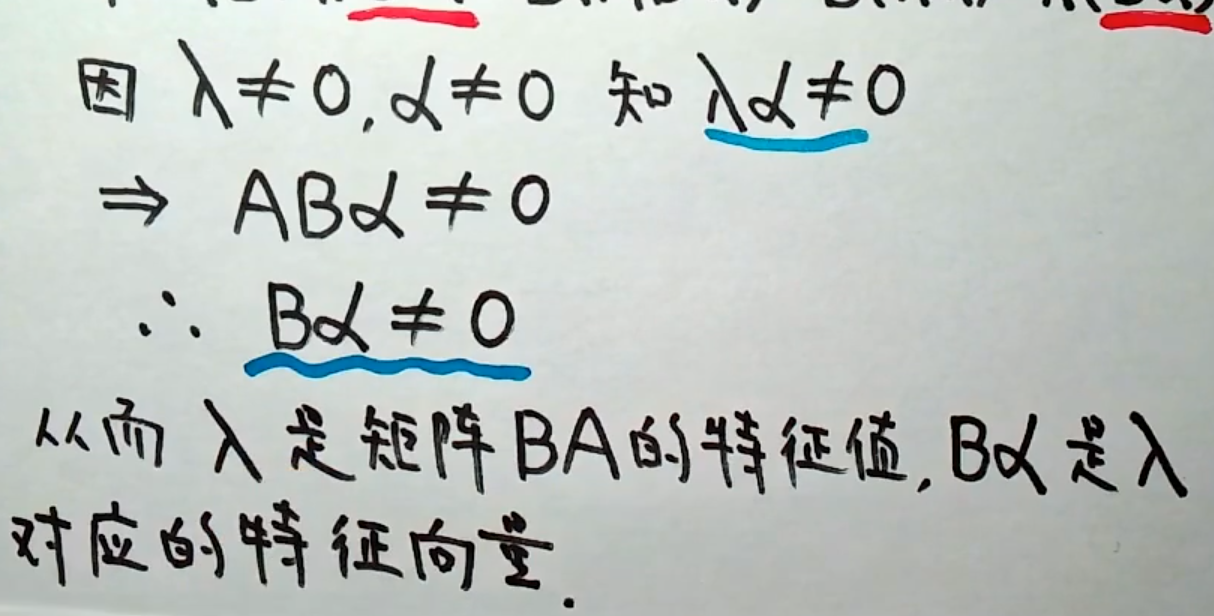 因 λ≠0, α≠0 知 λα≠0
⇒ ABα≠0
∴ Bα≠0
从而 λ 是矩阵BA的特征值, Bα 是 λ
对应的特征向量.